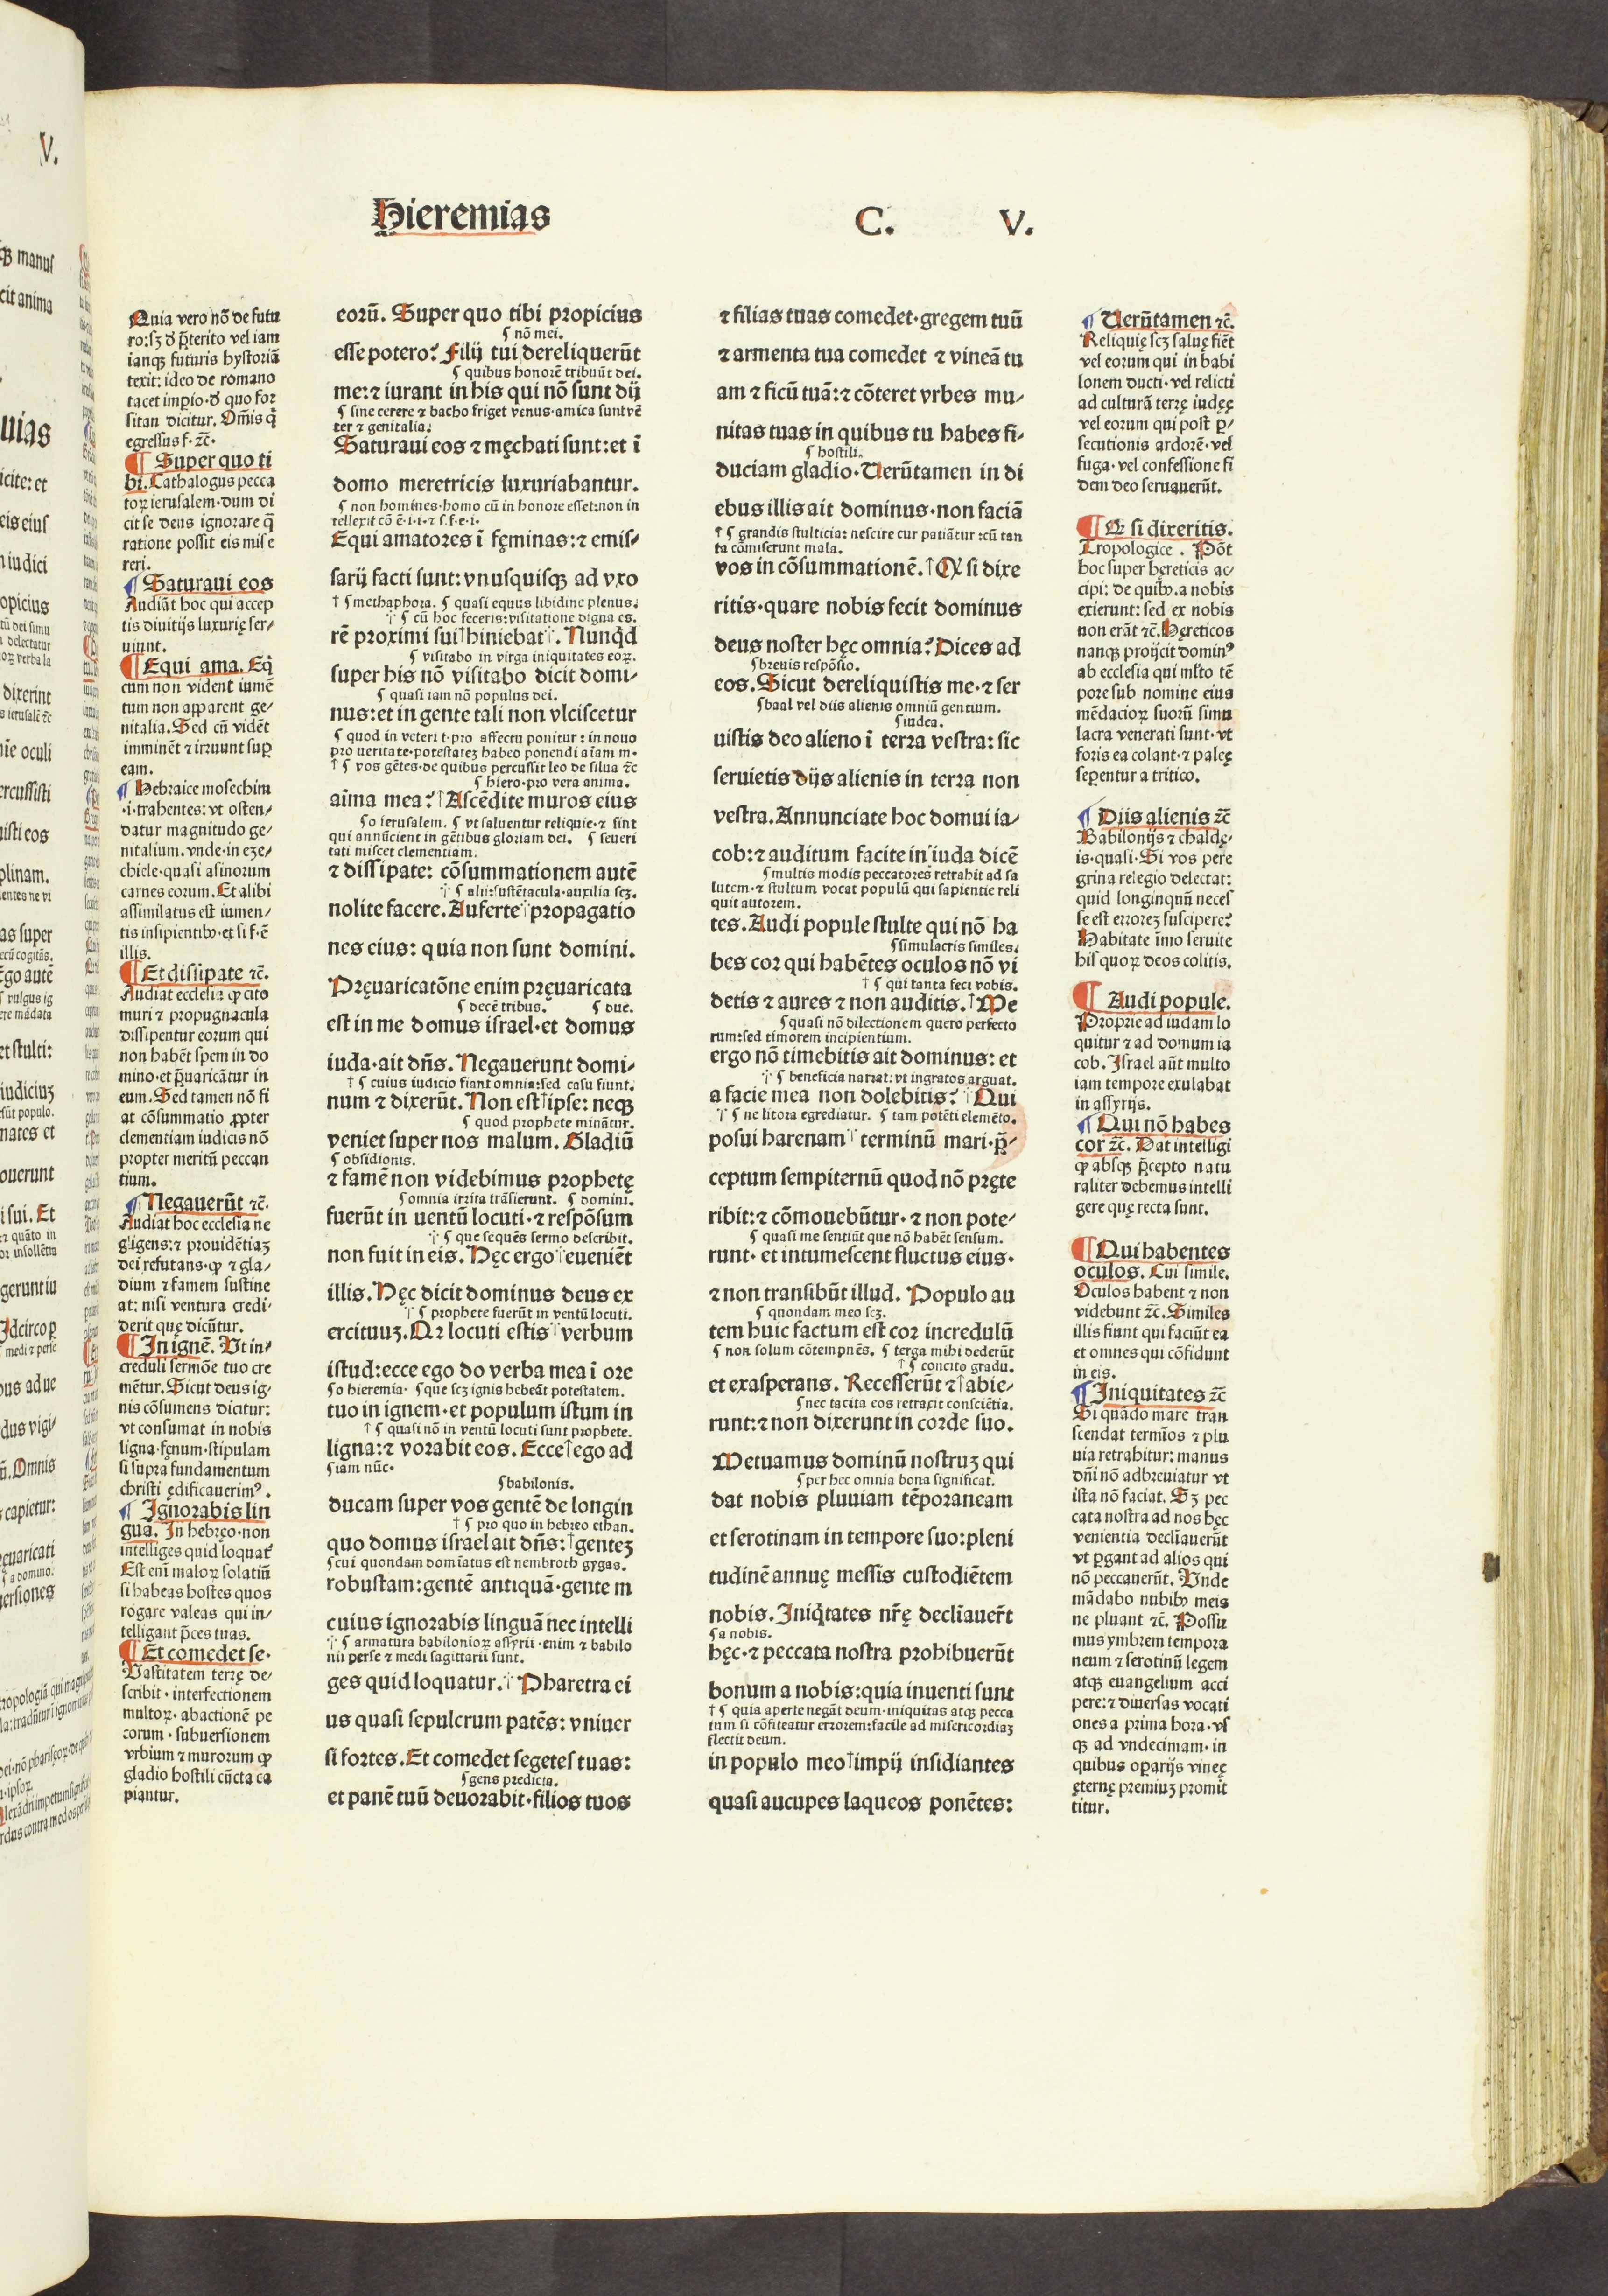 Hieremias
C. V.
Quia vero nō de futu
ro:sꝫ d̕ p̄terito vel iam
iamqꝫ futuris hystoriā
texit: ideo de romano
tacet imꝑio·d̕ quo for
sitan dicitur. Om̄is q̄
egressus f· ⁊c̄·
¶ Super quo ti
bi. Cathalogus pecca
toꝝ ierusalem·dum di
cit se deus ignorare q̄
ratione possit eis mise
reri.
¶ Saturaui eos
Audiāt hoc qui accep
tis diuitijs luxurię ser⸗
uiunt.
¶ Equi ama. Eq̄
cum non vident iumē
tum non apparent ge⸗
nitalia. Sed cū vidēt
imminēt ⁊ irruunt suꝑ
eam.
¶ Hebraice mosechim
·i·trahentes: vt osten⸗
datur magnitudo ge⸗
nitalium.vnde·in eze⸗
chiele·quasi asinorum
carnes eorum. Et alibi
assimilatus est iumen⸗
tis insipientibꝰ·et si f·ē
illis.
¶ Et dissipate ⁊c̄.
Audiat ecclesia ꝙ cito
muri ⁊ propugnacula
dissipentur eorum qui
non habēt spem in do
mino·et p̄uaricātur in
eum. Sed tamen nō fi
at cōsummatio ꝓpter
clementiam iudicis nō
propter meritū peccan
tium.
¶ Negauerūt ⁊c̄.
Audiat hoc ecclesia ne
gligens:⁊ prouidētiaꝫ
dei refutans·ꝙ ⁊ gla⸗
dium ⁊ famem sustine
at: nisi ventura credi⸗
derit quę dicūtur.
¶ In ignē. Vt in⸗
creduli sermōe tuo cre
mētur. Sicut deus ig⸗
nis cōsumens dicitur:
vt consumat in nobis
ligna·fęnum·stipulam
si supra fundamentum
christi ędificauerimꝰ.
¶ Ignorabis lin
gua. In hebręo·non
intelliges quid loquat̕
Est enī maloꝝ solatiū
si habeas hostes quos
rogare valeas qui in⸗
telligant p̄ces tuas.
¶ Et comedet se·
Vastitatem terrę de⸗
scribit·interfectionem
multoꝝ·abactionē pe
corum·subuersionem
vrbium ⁊ murorum ꝙ
gladio hostili cūcta ca
piantur.
eorū. Super quo tibi propicius
¶ nō mei.
esse potero? Filij tui dereliquerūt
¶ quibus honorē tribuūt dei.
me:⁊ iurant in his qui nō sunt dij
¶ sine cerere ⁊ bacho friget venus·amica sunt vē
ter ⁊ genitalia.
Saturaui eos ⁊ męchati sunt:et ī
domo meretricis luxuriabantur.
¶ non homines·homo cū in honore esset:non in
tellexit cō ē·i·i·⁊ s.f·e·i·
Equi amatores ī fęminas:⁊ emis⸗
sarij facti sunt: vnusquisqꝫ ad vxo
† ¶ methaphora. ¶ quasi equus libidine plenus.
⸓ ¶ cū hoc feceris:visitatione digna es.
rē proximi sui†hiniebat⸓. Nunq̄d
¶ visitabo in virga iniquitates eoꝝ.
super his nō visitabo dicit domi⸗
¶ quasi iam nō populus dei.
nus:et in gente tali non vlciscetur
¶ quod in veteri t·pro affectu ponitur: in nouo
pro veritate·potestateꝫ habeo ponendi aīam m·
† ¶ vos gētes·de quibus percussit leo de silua ⁊c̄
¶ hiero·pro vera anima.
aīma mea?†Ascēdite muros eius
¶ o ierusalem. ¶ vt saluentur reliquie·⁊ sint
qui annūcient in gētibus gloriam dei. ¶ seueri
tati miscet clementiam.
⁊ dissipate: cōsummationem autē
⸓ ¶ alij:sustētacula·auxilia scꝫ.
nolite facere. Auferte⸓propagatio
nes eius: quia non sunt domini.
Pręuaricatōne enim pręuaricata
¶ decē tribus. ¶ due.
est in me domus israel·et domus
iuda·ait dn̄s. Negauerunt domi⸗
† ¶ cuius iudicio fiant omnia:sed casu fiunt.
num ⁊ dixerūt. Non est†ipse: neqꝫ
¶ quod prophete minātur.
veniet super nos malum. Gladiū
¶ obsidionis.
⁊ famē non videbimus prophetę
¶ omnia irrita trāsierunt. ¶ domini.
fuerūt in uentū locuti·⁊ respōsum
⸓ ¶ que sequēs sermo describit.
non fuit in eis. Hęc ergo⸓eueniēt
illis. Hęc dicit dominus deus ex
⸓ ¶ prophete fuerūt in ventū locuti.
ercituuꝫ. Qꝛ locuti estis⸓verbum
istud:ecce ego do verba mea ī ore
¶ o hieremia· ¶ que scꝫ ignis hebeāt potestatem.
tuo in ignem·et populum istum in
† ¶ quasi nō in ventū locuti sunt prophete.
ligna:⁊ vorabit eos. Ecce†ego ad
¶ iam nūc·
¶ babilonis.
ducam super vos gentē de longin
† ¶ pro quo in hebreo ethan.
quo domus israel ait dn̄s:†genteꝫ
¶ cui quondam domīatus est nembroth gygas.
robustam:gentē antiquā·gente m
cuius ignorabis linguā nec intelli
⸓ ¶ armatura babilonioꝝ assyrii·enim ⁊ babilo
nii perse ⁊ medi sagittarii sunt.
ges quid loquatur.⸓Pharetra ei
us quasi sepulcrum patēs: vniuer
si fortes. Et comedet segetes tuas:
¶ gens predicta.
et panē tuū deuorabit·filios tuos
⁊ filias tuas comedet·gregem tuū
⁊ armenta tua comedet ⁊ vineā tu
am ⁊ ficū tuā:⁊ cōteret vrbes mu⸗
nitas tuas in quibus tu habes fi⸗
¶ hostili.
duciam gladio·Verūtamen in di
ebus illis ait dominus·non faciā
† ¶ grandis stulticia: nescire cur patiātur:cū tan
ta cōmiserunt mala.
vos in cōsummationē.†Qꝫ si dixe
ritis·quare nobis fecit dominus
deus noster hęc omnia? Dices ad
¶ breuis respōsio.
eos. Sicut dereliquistis me·⁊ ser
¶ baal vel diis alienis omniū gentium.
¶ iudea.
uistis deo alieno ī terra vestra: sic
seruietis dijs alienis in terra non
vestra. Annunciate hoc domui ia⸗
cob:⁊ auditum facite in iuda dicē
¶ multis modis peccatores retrahit ad sa
lutem·⁊ stultum vocat populū qui sapientie reli
quit autorem.
tes. Audi popule stulte qui nō ha
¶ simulacris similes.
bes cor qui habētes oculos nō vi
† ¶ qui tanta feci vobis.
detis ⁊ aures ⁊ non auditis.†Me
¶ quasi nō dilectionem quero perfecto
rum:sed timorem incipientium.
ergo nō timebitis ait dominus: et
⸓ ¶ beneficia narrat: vt ingratos arguat.
a facie mea non dolebitis?⸓Qui
⸓ ¶ ne litora egrediatur. ¶ tam potēti elemēto.
posui harenam⸓ terminū mari·p̄⸗
ceptum sempiternū quod nō pręte
ribit:⁊ cōmouebūtur·⁊ non pote⸗
¶ quasi me sentiūt que nō habēt sensum.
runt·et intumescent fluctus eius·
⁊ non transibūt illud. Populo au
¶ quondam meo scꝫ.
tem huic factum est cor incredulū
¶ non solum cōtempnēs. ¶ terga mihi dederūt
† ¶ concito gradu.
et exasperans. Recesserūt ⁊†abie⸗
¶ nec tacita eos retraxit consciētia.
runt:⁊ non dixerunt in corde suo.
Metuamus dominū nostruꝫ qui
¶ per hec omnia bona significat.
dat nobis pluuiam tēporaneam
et serotinam in tempore suo:pleni
tudinē annuę messis custodiētem
nobis. Iniq̄tates nr̄ę declīauer̄t
¶ a nobis.
hęc·⁊ peccata nostra prohibuerūt
bonum a nobis:quia inuenti sunt
† ¶ quia aperte negāt deum·iniquitas atqꝫ pecca
tum si cōfiteatur errorem:facile ad misericordiaꝫ
flectit deum.
in populo meo†impij insidiantes
quasi aucupes laqueos ponētes:
¶ Verūtamen ⁊c̄.
Reliquię scꝫ saluę fiēt
vel eorum qui in babi
lonem ducti·vel relicti
ad culturā terrę iudęę
vel eorum qui post ꝑ⸗
secutionis ardorē·vel
fuga·vel confessione fi
dem deo seruauerūt.
¶ Qꝫ si dixeritis.
Tropologice. Pōt
hoc super hęreticis ac⸗
cipi: de quibꝰ.a nobis
exierunt: sed ex nobis
non erāt ⁊c̄. Hęreticos
nanqꝫ proijcit dominꝰ
ab ecclesia qui ml̕to tē
pore sub nomine eius
mēdacioꝝ suorū simu
lacra venerati sunt·vt
foris ea colant·⁊ palęę
seꝑentur a tritico.
¶ Diis alienis ⁊c̄
Babilonijs ⁊ chaldę⸗
is·quasi·Si vos pere
grina relegio delectat:
quid longinquū neces
se est erroreꝫ suscipere?
Habitate īmo seruite
his quoꝝ deos colitis.
¶ Audi popule.
Proprie ad iudam lo
quitur ⁊ ad domum ia
cob. Israel aūt multo
iam tempore exulabat
in assyrijs.
¶ Qui nō habes
cor ⁊c̄. Dat intelligi
ꝙ absqꝫ p̄cepto natu
raliter debemus intelli
gere quę recta sunt.
¶ Qui habentes
oculos. Cui simile.
Oculos habent ⁊ non
videbunt ⁊c̄. Similes
illis fiunt qui faciūt ea
et omnes qui cōfidunt
in eis.
¶ Iniquitates ⁊c̄
Si quādo mare tran
scendat termīos ⁊ plu
uia retrahitur: manus
dn̄i nō adbreuiatur vt
ista nō faciat. Sꝫ pec
cata nostra ad nos hęc
venientia declīauerūt
vt ꝑgant ad alios qui
nō peccauerūt. Vnde
mādabo nubibꝰ meis
ne pluant ⁊c̄. Possu
mus ymbrem tempora
neum ⁊ serotinū legem
atqꝫ euangelium acci
pere:⁊ diuersas vocati
ones a prima hora·vs
qꝫ ad vndecimam·in
quibus oꝑarijs vineę
ęternę premiuꝫ promit
titur.